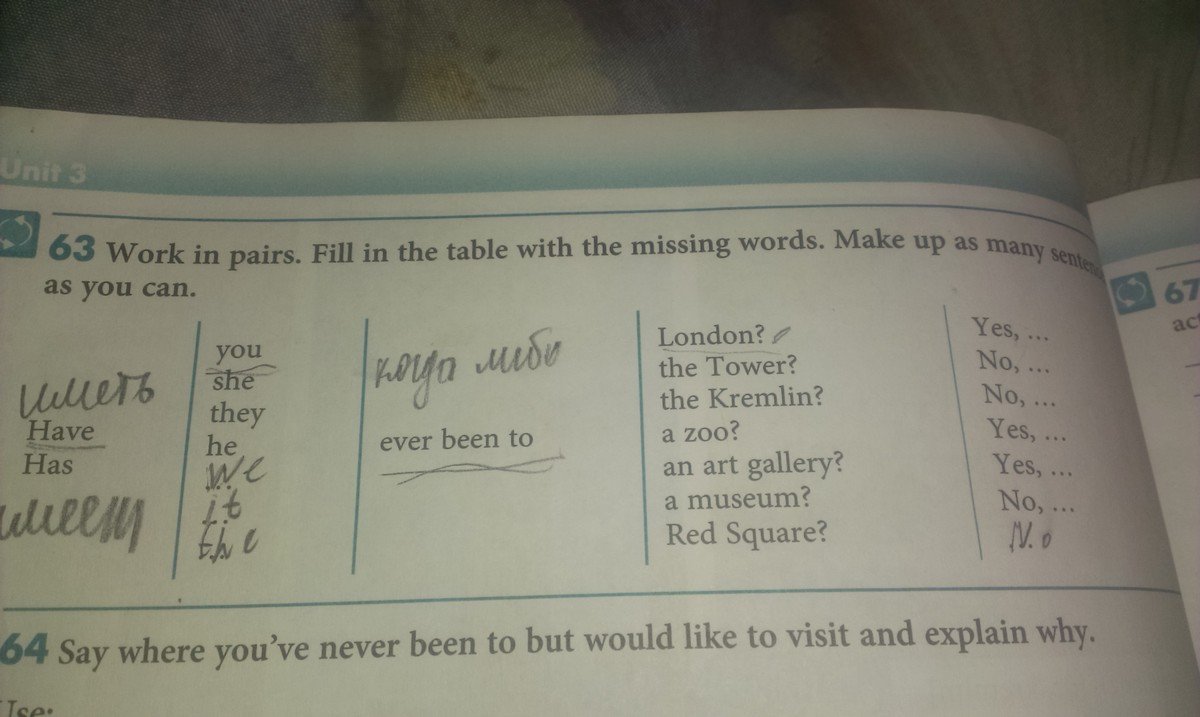 Unit 3
63 Work in pairs. Fill in the table with the missing words. Make up as many
as you can.
иметь
Have
Has
имеет
you
she
they
he
we
it
the
когда либо
ever been to
London?
the Tower?
the Kremlin?
a zoo?
an art gallery?
a museum?
Red Square?
Yes, ...
No, ...
No, ...
Yes, ...
Yes, ...
No, ...
No
64 Say where you've never been to but would like to visit and explain why.
Use:
67